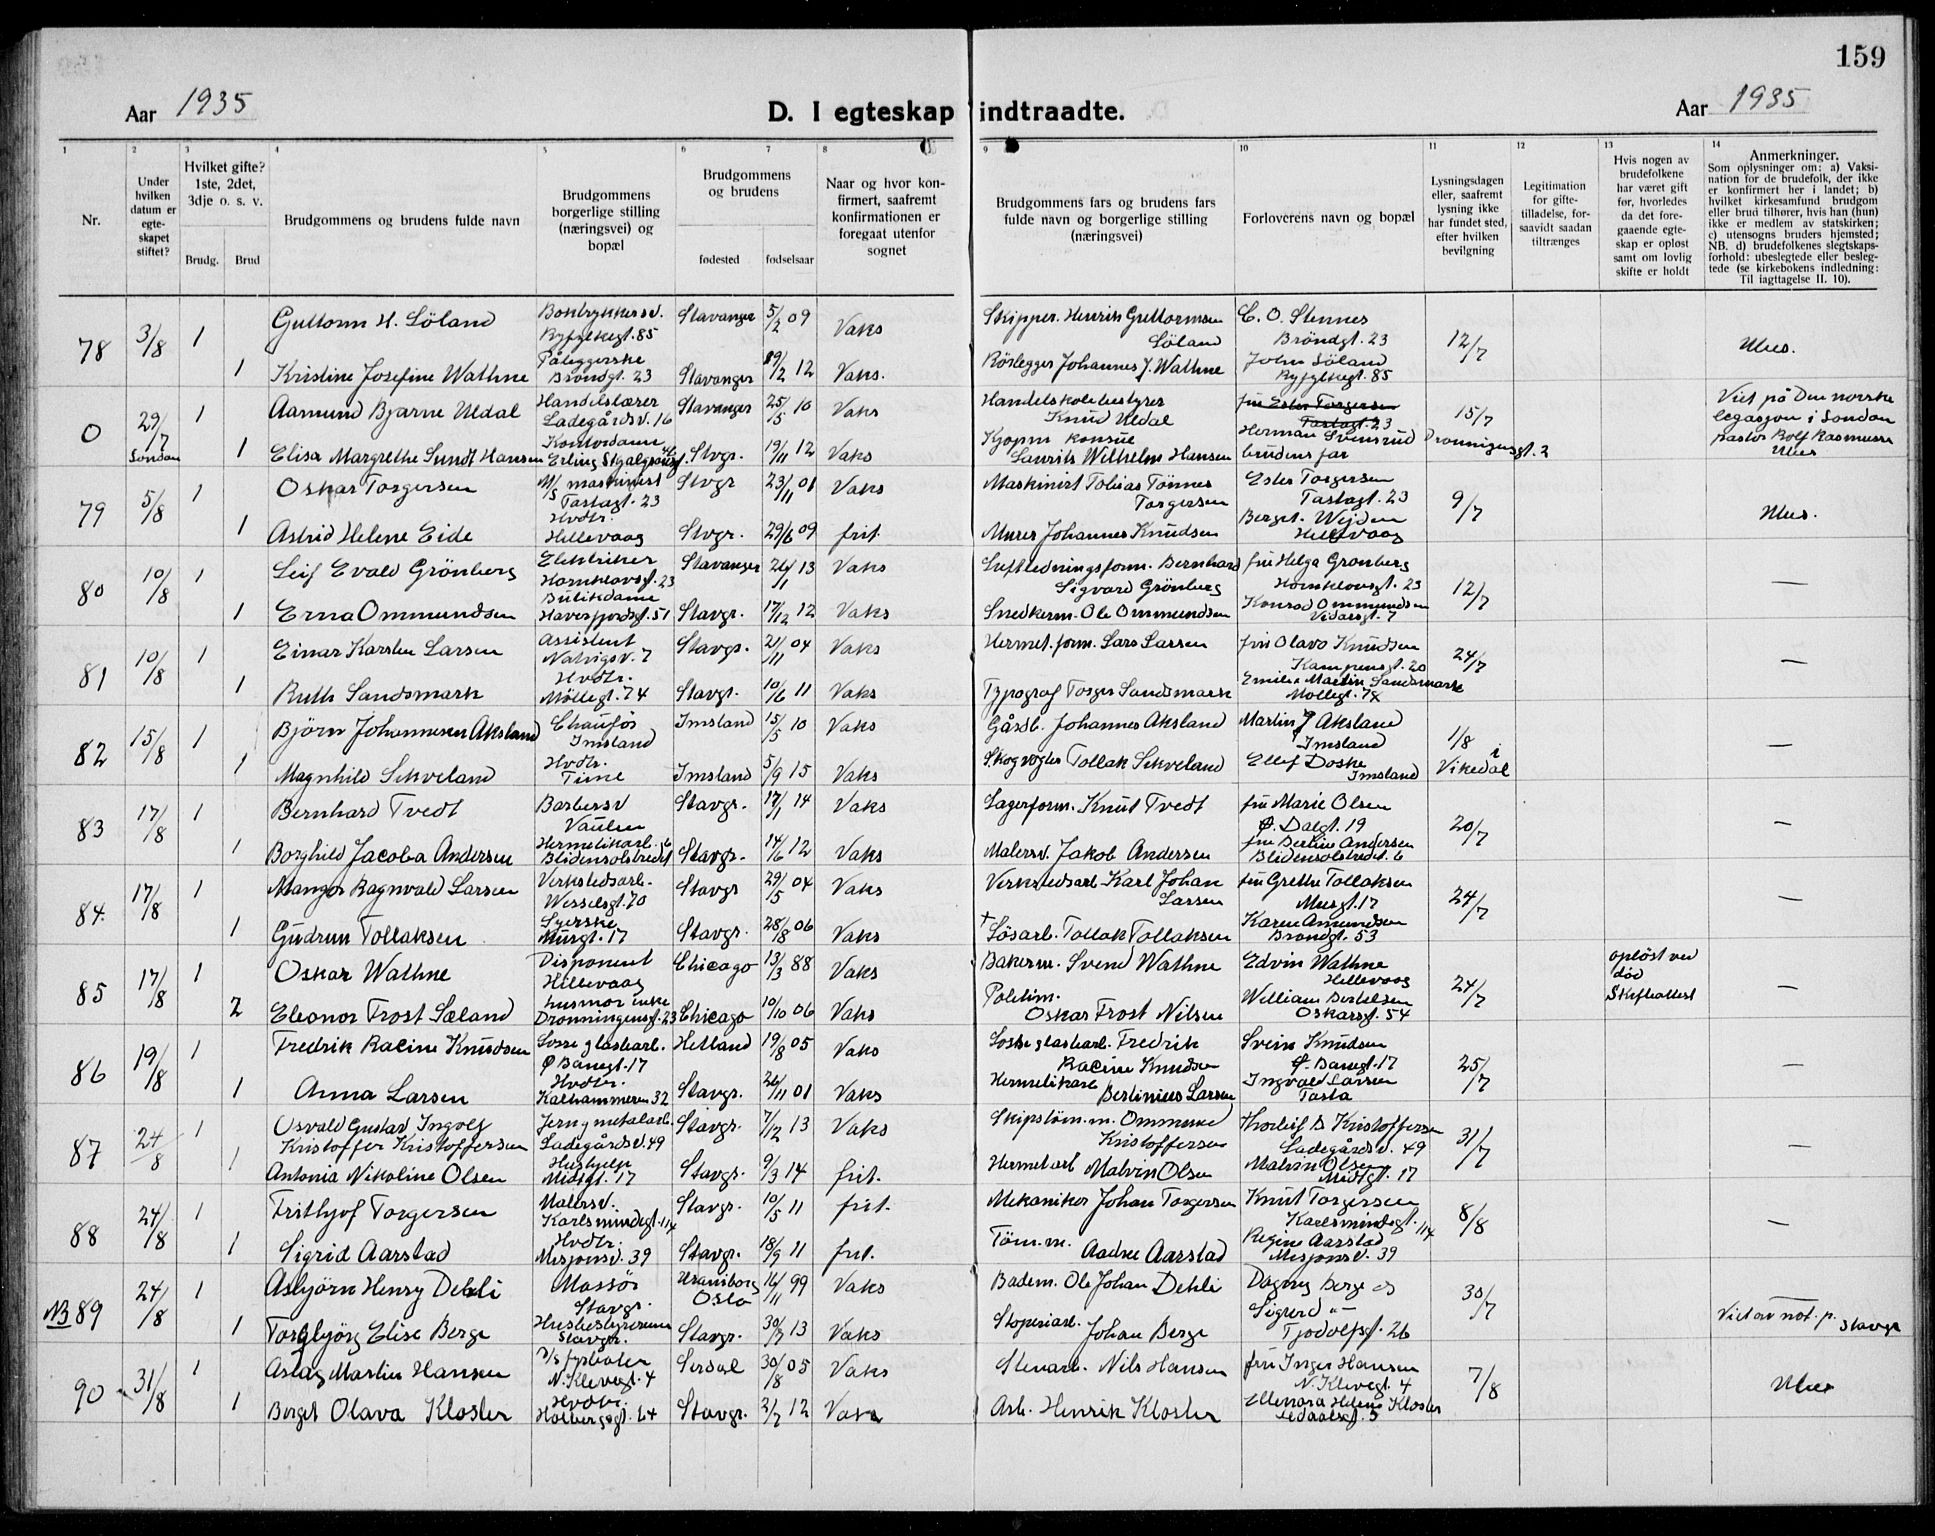 159
Aar 1935
D. I egteskap indtraadte.
Aar 1935
1 2 3 4 5 6 7 8 9 10 11 12 13 14
Nr.
Under hvilken datum er egteskapet stiftet?
Hvilket gifte? 1ste, 2det, 3dje o. s. v.
Brudg. Brud
Brudgommens og brudens fulde navn
Brudgommens borgerlige stilling (næringsvei) og bopæl
Brudgommens og brudens
fødested fødselsaar
Naar og hvor konfirmert, saafremt konfirmationen er foregaat utenfor sognet
Brudgommens fars og brudens fars fulde navn og borgerlige stilling (næringsvei)
Forloverens navn og bopæl
Lysningsdagen eller, saafremt lysning ikke har fundet sted, efter hvilken bevilgning
Legitimation for giftetilladelse, forsaavidt saadan tiltrænges
Hvis nogen av brudefolkene har været gift før, hvorledes da det foregaaende egteskap er opløst samt om lovlig skifte er holdt
Anmerkninger.
Som oplysninger om: a) Vaksination for de brudefolk, der ikke er konfirmert her i landet; b) hvilket kirkesamfund brudgom eller brud tilhører, hvis han (hun) ikke er medlem av statskirken; c) utensogns bruders hjemsted; NB. d) brudefolkenes slegtskapsforhold: ubeslegtede eller beslegtede (se kirkebokens indledning: Til iagttagelse II. 10).
78 3/8 1 Guttorm H. Söland Boktrykkersv. Ryfylkegt. 85 Stavanger 5/2 09 Vaks Skipper. Henrik Guttormsen Söland C. O. Stennes Bröndgt. 23 12/7
1 Kristine Josefine Wathne Påleggerske Bröndgt. 23 Stavanger 19/2 12 Vaks. Rörlegger Johannes J. Wathne John Söland Ryfylkegt. 85
0 29/7 London 1 Aamund Bjarne Uldal Handelslærer Ladegårdsv. 16 Stavanger 25/5 10 Vaks Handelskolebestyrer Knud Uldal fru Ester Torgersen Tastagt. 23 Herman Svensrud Dronningensgt. 2 15/7 Viet på Den norske legasjon i London pastor Rolf Rasmussen
1 Elisa Margrethe Sundt Hansen Kontordame Erling Skjalgsonsgt. Stvgr. 19/11 12 Vaks Kjøpm konsul Laurits Wilhelm Hansen brudens far
79 5/8 1 Oskar Torgersen M/S maskinist Tastagt. 23 Stvgr 23/11 01 Vaks Maskinist Tobias Tönnes Torgersen Ester Torgersen Tastagt. 23 9/7
1 Astrid Helene Eide Hvdtr. Hillevaag Stvgr. 29/6 09 frit. Murer Johannes Knudsen Berget. Wejden Hillevaag
80 10/8 1 Leif Evald Grönberg Elektriker Hornklovsgt. 23 Stavanger 24/1 13 Vaks Luftledningsform. Bernhard Sigvard Grönberg fru Helga Grönberg Hornklovsgt. 23 12/7 —
1 Erna Ommundsen Butikkdame Haversfjordsgt. 51 Stavgr. 17/12 12 Vaks Snedkerm. Ole Ommundsen Konrad Ommundsen Vidarsgt. 7
81 10/8 1 Einar Karsten Larsen Assistent Natvigsv. 7 Stavgr. 21/11 04 Vaks Hermet. form. Lars Larsen fru Olava Knudsen Kampensgt. 20 24/7 —
1 Ruth Sandsmark Hvdtr. Möllegt. 74 Stavgr. 10/6 11 Vaks Typograf Torger Sandsmark Emil Martin Sandsmark Möllegt. 74
82 15/8 1 Björn Johannesen Aksland Chaufför Imsland Imsland 15/5 10 Vaks Gårdb. Johannes Aksland Martin J Aksland Imsland 1/8 i Vikedal —
1 Magnhild Sekveland Hvdtr. Time Imsland 5/9 15 Vaks Skogvogter Tollak Sekveland Ellef Doske Imsland
83 17/8 1 Bernhard Tvedt Barbersv Vaulen Stavgr. 17/1 14 Vaks Lagerform. Knut Tvedt fru Marie Olsen Ø. Dalgt. 19 20/7 —
1 Borghild Jacoba Andersen Hermetikarb. Blidensolstredet 6 Stavgr. 14/6 12 Vaks Malersv. Jakob Andersen fru Bertine Andersen Blidensolstredet. 6
84. 17/8 1 Mangor Ragnvald Larsen Verkstedsarb. Wesselsgt. 70 Stavgr 29/5 04 Vaks Verkstedsarb Karl Johan Larsen fru Grethe Tollaksen Murgt. 17 24/7 —
1 Gudrun Tollaksen Syerske Murgt. 17 Stavgr. 28/8 06 Vaks † Lösarb. Tollak Tollaksen Karen Amundsen Bröndgt. 53
85 17/8 1 Oskar Wathne Disponent Hillevaag Chicago 13/3 88 Vaks Bakerm. Svend Wathne Edvin Wathne Hillevaag 24/7 opløst ved död Skifteattest —
2 Eleonor Frost Sæland husmor enke Dronningensgt. 23 Chicago 10/10 06 Vaks Politim. Oskar Frost Nilsen William Bertelsen Oskarsgt. 54
86 19/8 1 Fredrik Racine Knudsen Losse glasbarb. Ø Banegt. 17 Hetland 19/8 05 Vaks Fredrik Racine Knudsen Svein Knudsen Ø. Banegt. 17 25/7 —
1 Anna Larsen Hvdtr. Kalhammeren 32 Stavgr. 26/11 01 Vaks Hermetikarb Bertinius Larsen Ingvald Larsen Tasta
87 24/8 1 Osvald Gustav Ingolf Kristoffer Kristoffersen Jern & metalarb. Ladegårdsv. 49 Stavgr. 7/12 13 Vaks Skipstöm.m. Ommund Kristoffersen Thorleif B Kristoffersen Ladegårdsv. 49 31/7 —
1 Antonia Nikoline Olsen Hushjelp Midtgt. 17 Stavgr. 9/3 14 frit. Hermetarb Malvin Olsen Malvin Olsen Midtgt. 17
88 24/8 1 Frithjof Torgersen Malersv. Karlsmindegt. 114 Stavgr. 10/5 11 frit. Mekaniker Johan Torgersen Knut Torgersen Karlsmindegt. 114 8/8 —
1 Sigrid Aarstad Hvdtr. Misjonsv. 39 Stavgr. 18/9 11 frit. Töm.m. Aadne Aarstad Regine Aarstad Misjonsv. 39
NB 89 24/8 1 Asbjörn Henry Dehli Massör Stavgr. Uranienborg Oslo 16/11 99 Vaks Badem. Ole Johan Dehli Dagny Berge og Sigurd 30/7 Viet av not. p. Stavgr
1 Torgbjörg Elise Berge Husbestyrerinne Stavgr. Stavgr. 30/7 13 Vaks Stoperiarb. Johan Berge Tjodolfsgt. 26
90 31/8 1 Aslag Martin Hansen fyrböter N. Klevegt. 4 Sirdal 30/8 05 Vaks Stenarb. Nils Hansen fru Inger Hansen N. Klevegt. 4 7/8
1 Berget Olava Kloster Hvdtr. Holbergsgt. 64 Stavgr. 2/7 12 Vaks Arb. Henrik Kloster Ellenora Helene Kloster Ledaalsgt. 5